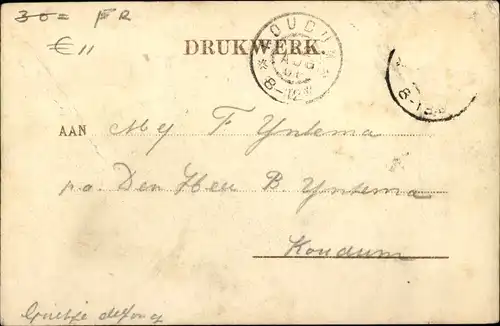 30= FR
€11
DRUKWERK
OUDU
AUG
01
8-12
8-12
AAN Mej F Yntema
p.a. Den Heer B Yntema
Koudum
Grietje de Jong